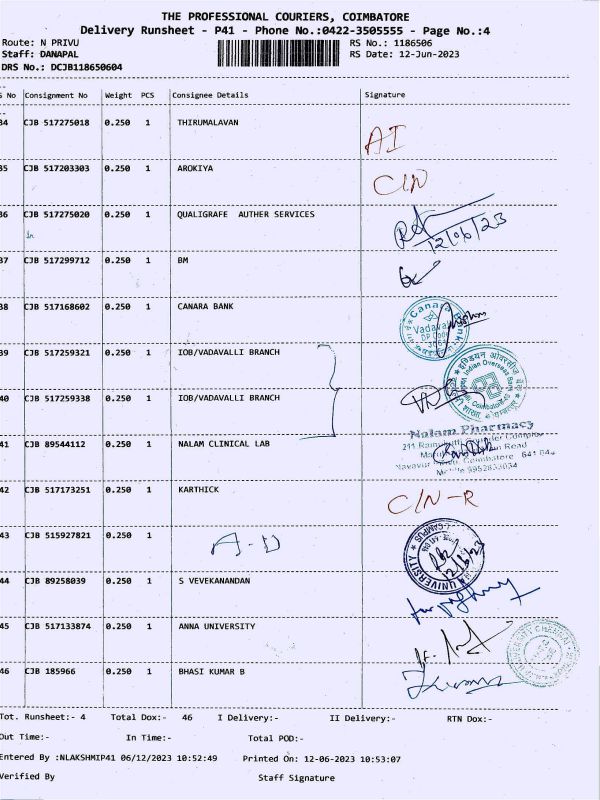 THE PROFESSIONAL COURIERS, COIMBATORE
Delivery Runsheet - P41 - Phone No.:0422-3505555 - Page No.:4
Route: N PRIVU RS No.: 1186506
Staff: DANAPAL RS Date: 12-Jun-2023
DRS No.: DCJB118650604
S No Consignment No Weight PCS Consignee Details Signature
34 CJB 517275018 0.250 1 THIRUMALAVAN
AI
35 CJB 517203303 0.250 1 AROKIYA
C/N
36 CJB 517275020 0.250 1 QUALIGRAFE AUTHER SERVICES
12/06/23
37 CJB 517299712 0.250 1 BM
38 CJB 517168602 0.250 1 CANARA BANK
39 CJB 517259321 0.250 1 IOB/VADAVALLI BRANCH
40 CJB 517259338 0.250 1 IOB/VADAVALLI BRANCH
41 CJB 89544112 0.250 1 NALAM CLINICAL LAB
Nalam Pharmacy
42 CJB 517173251 0.250 1 KARTHICK
C/N-R
43 CJB 515927821 0.250 1 A-D
44 CJB 89258039 0.250 1 S VEVEKANANDAN
45 CJB 517133874 0.250 1 ANNA UNIVERSITY
46 CJB 185966 0.250 1 BHASI KUMAR B
Tot. Runsheet:- 4 Total Dox:- 46 I Delivery:- II Delivery:- RTN Dox:-
Out Time:- In Time:- Total POD:-
Entered By :NLAKSHMIP41 06/12/2023 10:52:49 Printed On: 12-06-2023 10:53:07
Verified By Staff Signature